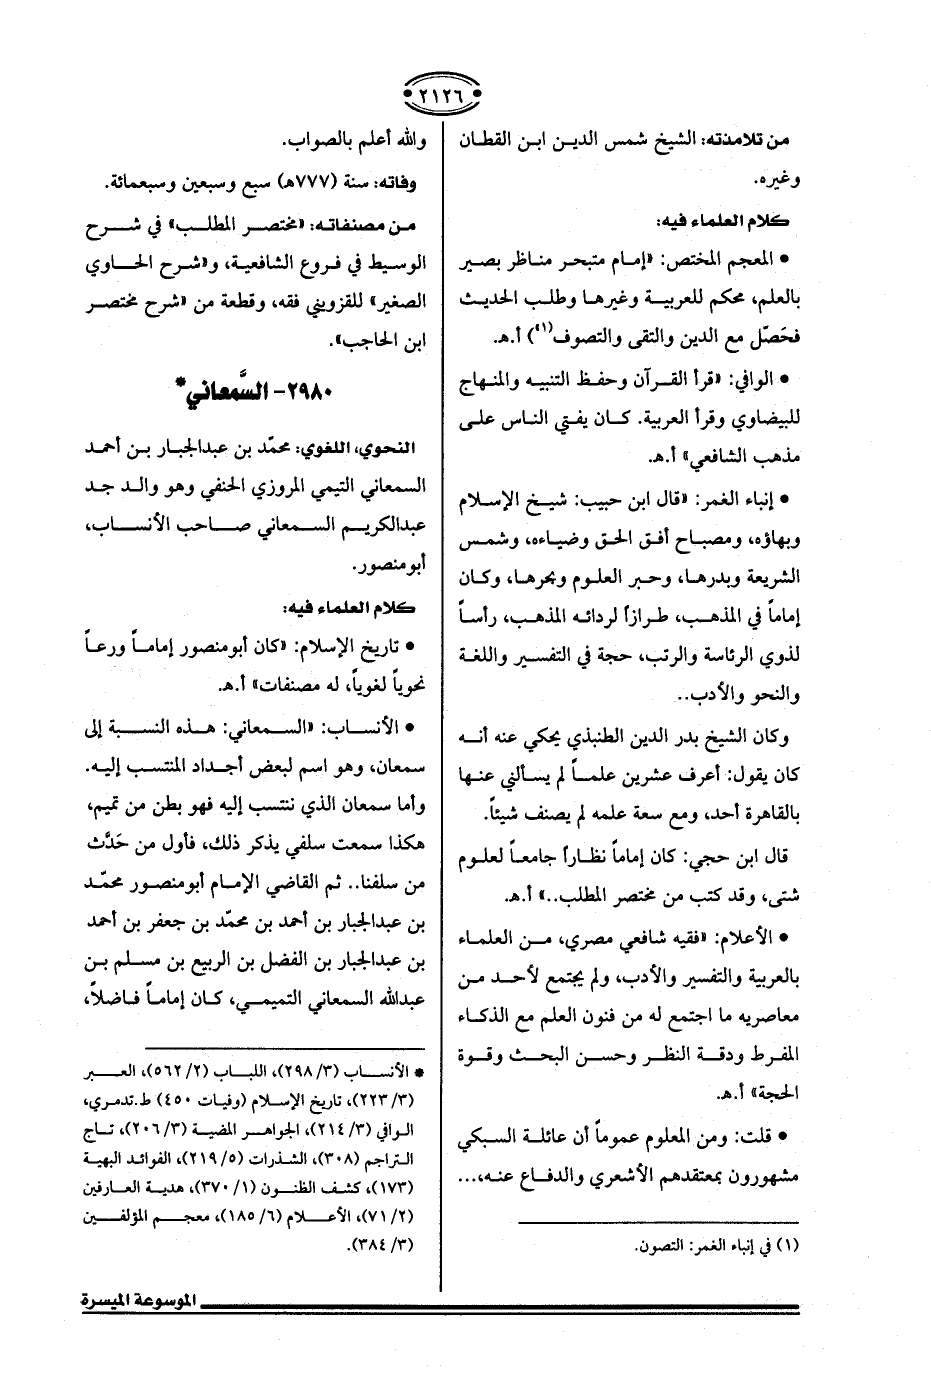 ٢١٢٦
من تلامذته: الشيخ شمس الدين ابن القطان
وغيره.
كلام العلماء فيه:
• المعجم المختص: «إمام متبحر مناظر بصير
بالعلم، محكم للعربية وغيرها وطلب الحديث
فحَصّل مع الدين والتقى والتصوف(١)» أ.هـ.
• الوافي: «قرأ القرآن وحفظ التنبيه والمنهاج
للبيضاوي وقرأ العربية. كان يفتي الناس على
مذهب الشافعي» أ.هـ.
• إنباء الغمر: «قال ابن حبيب: شيخ الإسلام
وبهاؤه، ومصباح أفق الحق وضياءه، وشمس
الشريعة وبدرها، وحبر العلوم وبحرها، وكان
إماماً في المذهب، طرازاً لردائه المذهب، رأساً
لذوي الرئاسة والرتب، حجة في التفسير واللغة
والنحو والأدب..
وكان الشيخ بدر الدين الطنبذي يحكي عنه أنه
كان يقول: أعرف عشرين علماً لم يسألني عنها
بالقاهرة أحد، ومع سعة علمه لم يصنف شيئاً.
قال ابن حجي: كان إماماً نظاراً جامعاً لعلوم
شتى، وقد كتب من مختصر المطلب..» أ.هـ.
• الأعلام: «فقيه شافعي مصري، من العلماء
بالعربية والتفسير والأدب، ولم يجتمع لأحد من
معاصريه ما اجتمع له من فنون العلم مع الذكاء
المفرط ودقة النظر وحسن البحث وقوة
الحجة» أ.هـ.
• قلت: ومن المعلوم عموماً أن عائلة السبكي
مشهورون بمعتقدهم الأشعري والدفاع عنه،...
(١) في إنباء الغمر: التصون.
والله أعلم بالصواب.
وفاته: سنة (٧٧٧هـ) سبع وسبعين وسبعمائة.
من مصنفاته: «مختصر المطلب» في شرح
الوسيط في فروع الشافعية، و«شرح الحاوي
الصغير» للقزويني فقه، وقطعة من «شرح مختصر
ابن الحاجب».
٢٩٨٠- السَّمعاني*
النحوي، اللغوي: محمّد بن عبدالجبار بن أحمد
السمعاني التيمي المروزي الحنفي وهو والد جد
عبدالكريم السمعاني صاحب الأنساب،
أبومنصور.
كلام العلماء فيه:
• تاريخ الإسلام: «كان أبومنصور إماماً ورعاً
نحوياً لغوياً، له مصنفات» أ.هـ.
• الأنساب: «السمعاني: هذه النسبة إلى
سمعان، وهو اسم لبعض أجداد المنتسب إليه.
وأما سمعان الذي ننتسب إليه فهو بطن من تميم،
هكذا سمعت سلفي يذكر ذلك، فأول من حَدَّث
من سلفنا.. ثم القاضي الإمام أبومنصور محمّد
بن عبدالجبار بن أحمد بن محمّد بن جعفر بن أحمد
بن عبدالجبار بن الفضل بن الربيع بن مسلم بن
عبدالله السمعاني التميمي، كان إماماً فاضلاً،
* الأنساب (٣/ ٢٩٨)، اللباب (٢/ ٥٦٢)، العبر
(٣/ ٢٢٣)، تاريخ الإسلام (وفيات ٤٥٠) ط.تدمري،
الوافي (٣/ ٢١٤)، الجواهر المضية (٣/ ٢٠٦)، تاج
التراجم (٣٠٨)، الشذرات (٥/ ٢١٩)، الفوائد البهية
(١٧٣)، كشف الظنون (١/ ٣٧٠)، هدية العارفين
(٢/ ٧١)، الأعلام (٦/ ١٨٥)، معجم المؤلفين
(٣/ ٣٨٤).
الموسوعة الميسرة